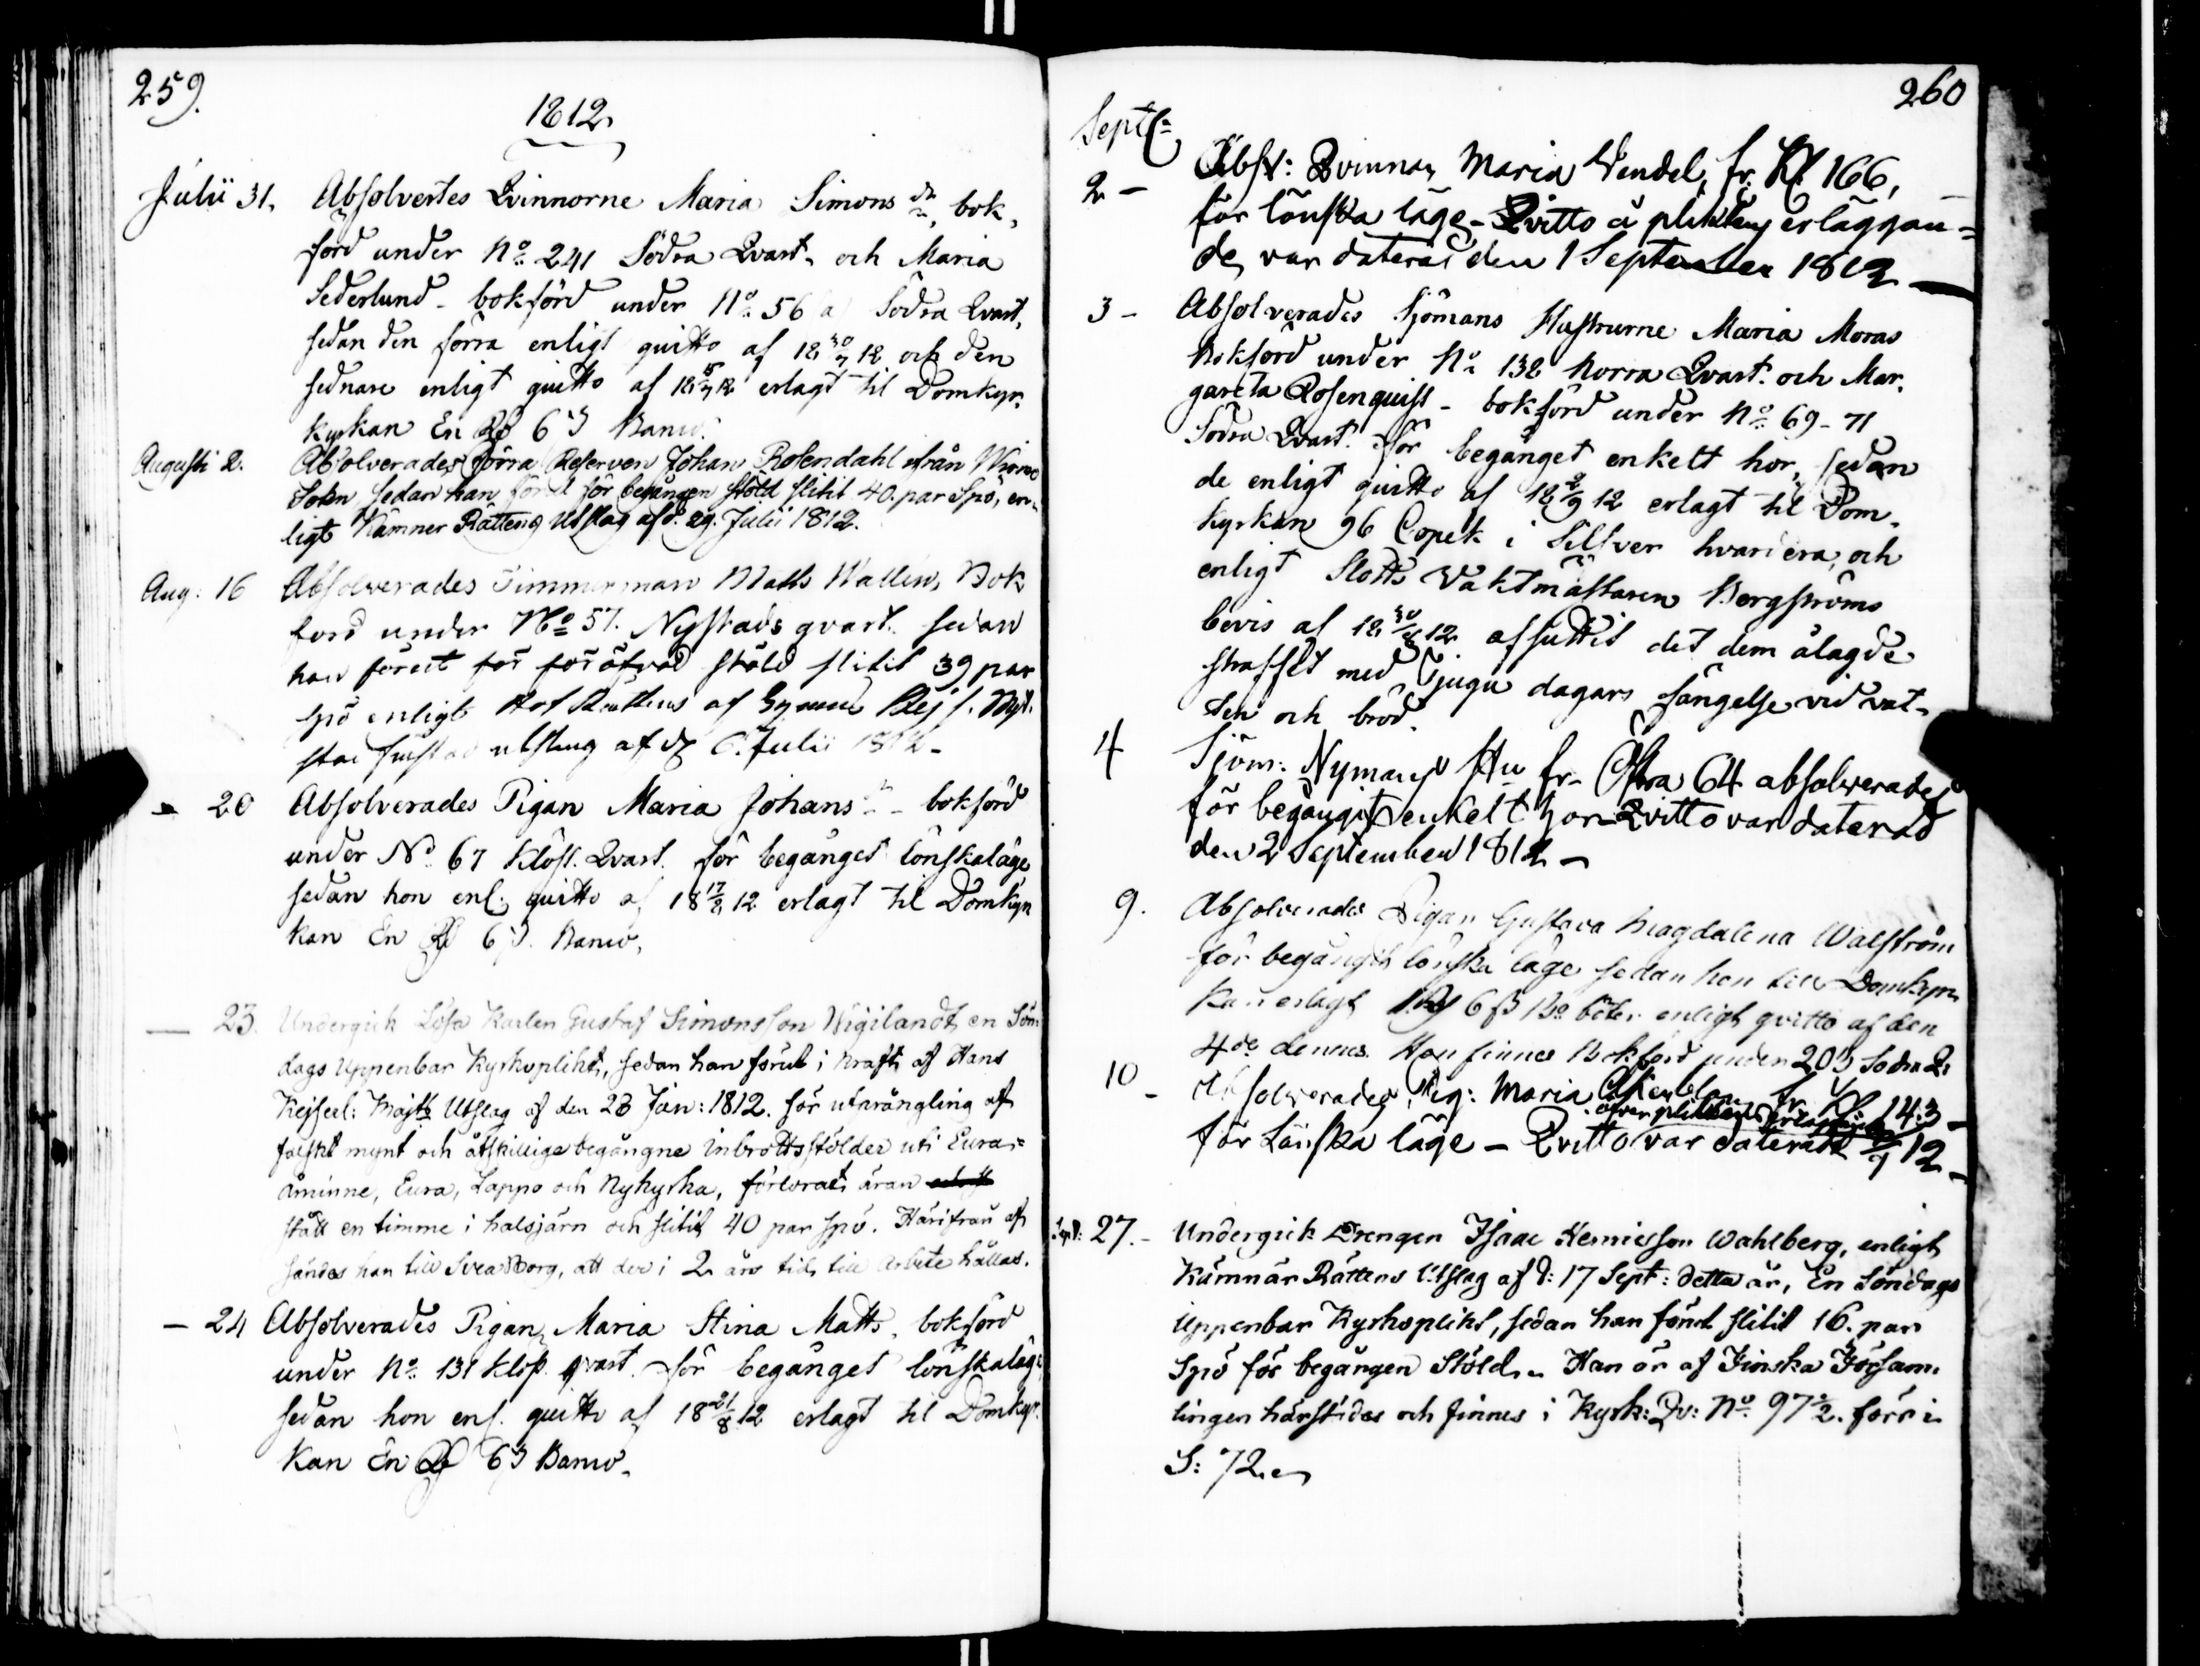 259.
1812.
Julii 31. Absolvertes Qvinnorne Maria Simons dr, bok-
förd under No 241 Södra Qvart. och Maria
Sederlund - bokförd under No 56 a Södra Qvart.
sedan den förra enligt quitto af 18 30/7 12 och den
sednare enligt quitto af 18 /7 12 erlagt til Domkyr-
kyrkan En Rd 6 s Banco.
Augusti 2. Absolverades förra Reserven Johan Rosendahl ifrån Wirmo
Sokn sedan han förut för begången stöld slitit 40. par Spö, en-
ligt Kämner Rättens Utslag af d. 29. Julii 1812.
Aug: 16 Absolverades Timmerman Matts Wallin, Bok
förd under No 57. Nystads qvart. sedan
han förut för föröfvad stöld slitit 39 par
spö enligt Hof Rättens af
utslag af d. 6. Julii 1812-
- 20 Absolverades Pigan Maria Johans dr - bokförd
under No 67 Klöst. Qvart. för begånget lönskaläge
sedan hon enl. quitto af 18 17/8 12 erlagt til Domkyr
kan En Rd 6 s. Banco.
- 23. Undergick Lösa Karlen Gustaf Simonsson Wigilandt en Sön
dags Uppenbar Kyrkoplikt, sedan han förut i kraft af Hans
Kejserl: Majts Utslag af den 23 Jan: 1812. för utprångling af
falskt mynt och åtskillige begångne inbrottsstölder uti Eura-
åminne, Eura, Lappo och Nykyrka, förlorat äran
stått en timme i halsjärn och slitit 40 par spö. Härifrån af
sändes han till Svea Borg, att der i 2 års tid till arbete hållas.
- 24 Absolverades Pigan Maria Stina Matts. bokförd
under No 131 Klost. qvart. för begånget lönskaläge
sedan hon enl. quitto af 18 21/8 12 erlagt til Domkyr
kan En Rd 6 s Banco.
260
Septbr
2 - Abslv: Qvinnan Maria Wendel, fr. Kl 166,
för lönska läge - Qvitto å pliktens erläggan-
de, var daterat den 1 September 1812 -
3 - Absolverades Sjömans Hustrurne Maria Moras
bokförd under No 132 Norra Qvart. och Mar-
gareta Rosenquist - bokförd under No 69-71
Södra Qvart. för begånget enkelt hor, sedan
de enligt quitto af 18 2/9 12 erlagt til Dom-
kyrkan 96 Copek i Silfver hvardera, och
enligt Slotts Vaktmästaren Bergströms
bevis af 18 30/8 12 afsuttit det dem ålagde
straffet med tjugu dagars fängelse vid vat-
ten och bröd.
4 Sjöm: Nymans Hu fr. Östra 64 absolverades
för begångit enkelt hor - Qvitto var daterad
den 2 September 1812 -
9. Absolverades Pigan Gustava Magdalena Walström
för begångit lönska läge sedan hon till Domkyr
kan erlagt 1 Rd 6 β Bo böter enligt qvitto af den
4de dennes. Hon finnes Bokförd under 203 Södra Q:
10 - Absolverades Pig: Maria fr. Kl 143 -
öfver pliktens erläggande
för Lönska läge - Qvitto var dateradt /9 12 -
Sept: 27. - Undergick Drengen Isaac Henricsson Wahlberg, enligt
Kämnär Rättens Utslag af d: 17 Sept: detta år, En Söndags
Uppenbar Kyrkoplikt, sedan han förut slitit 16. par
Spö för begången Stöld. - Han är af Finska Försam-
lingen härstädes och finnes i Kyrk: Qv: No 97 1/2. förr i
S: 72.